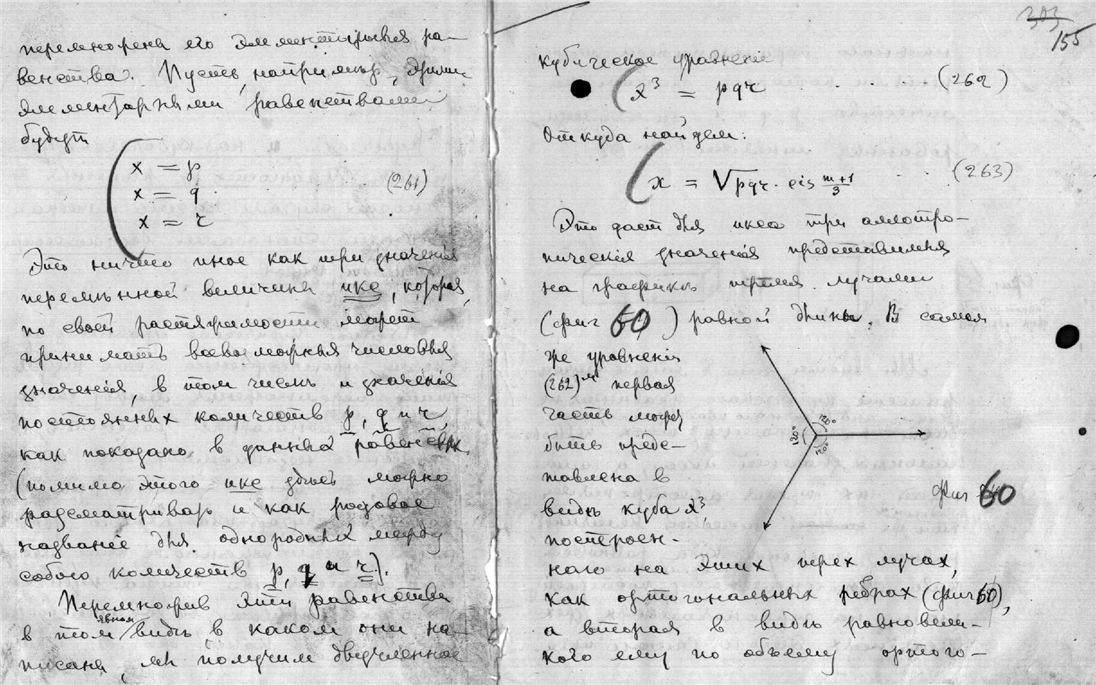 перемножена его элементарныя ра-
венства. Пусть, например, этими
элементарными равенствами
будут
x = p
x = q (261)
x = r
Это ничто иное как три значения
переменной величины икс, которая,
по своей растяжимости может
принимать всевозможныя числовыя
значения, в том числе и значения
постоянных количеств p, q и r,
как показано в данных равенствах
(помимо этого икс здесь можно
разсматривать и как родовое
название для однородных между
собою количеств p, q и r).
Перемножив эти равенства
в том явном виде в каком они на-
писаны, мы получим двучленное
303
155
кубическое уравнение
x³ = pqr . . (262)
Откуда найдем:
x = √pqr · cis m+1/3 . . (263)
Это дает для икса три аллотро-
пическия значения представимыя
на графике тремя лучами
(фиг 60) равной длины. В самом
же уравнении
(262)ᵐ первая
часть может
быть пред-
ставлена в
виде куба x³
построен-
ного на этих трех лучах,
как ортогональных ребрах (фиг 60),
а вторая в виде равновели-
кого ему по объему ортого-
120°
120°
120°
Фиг 60